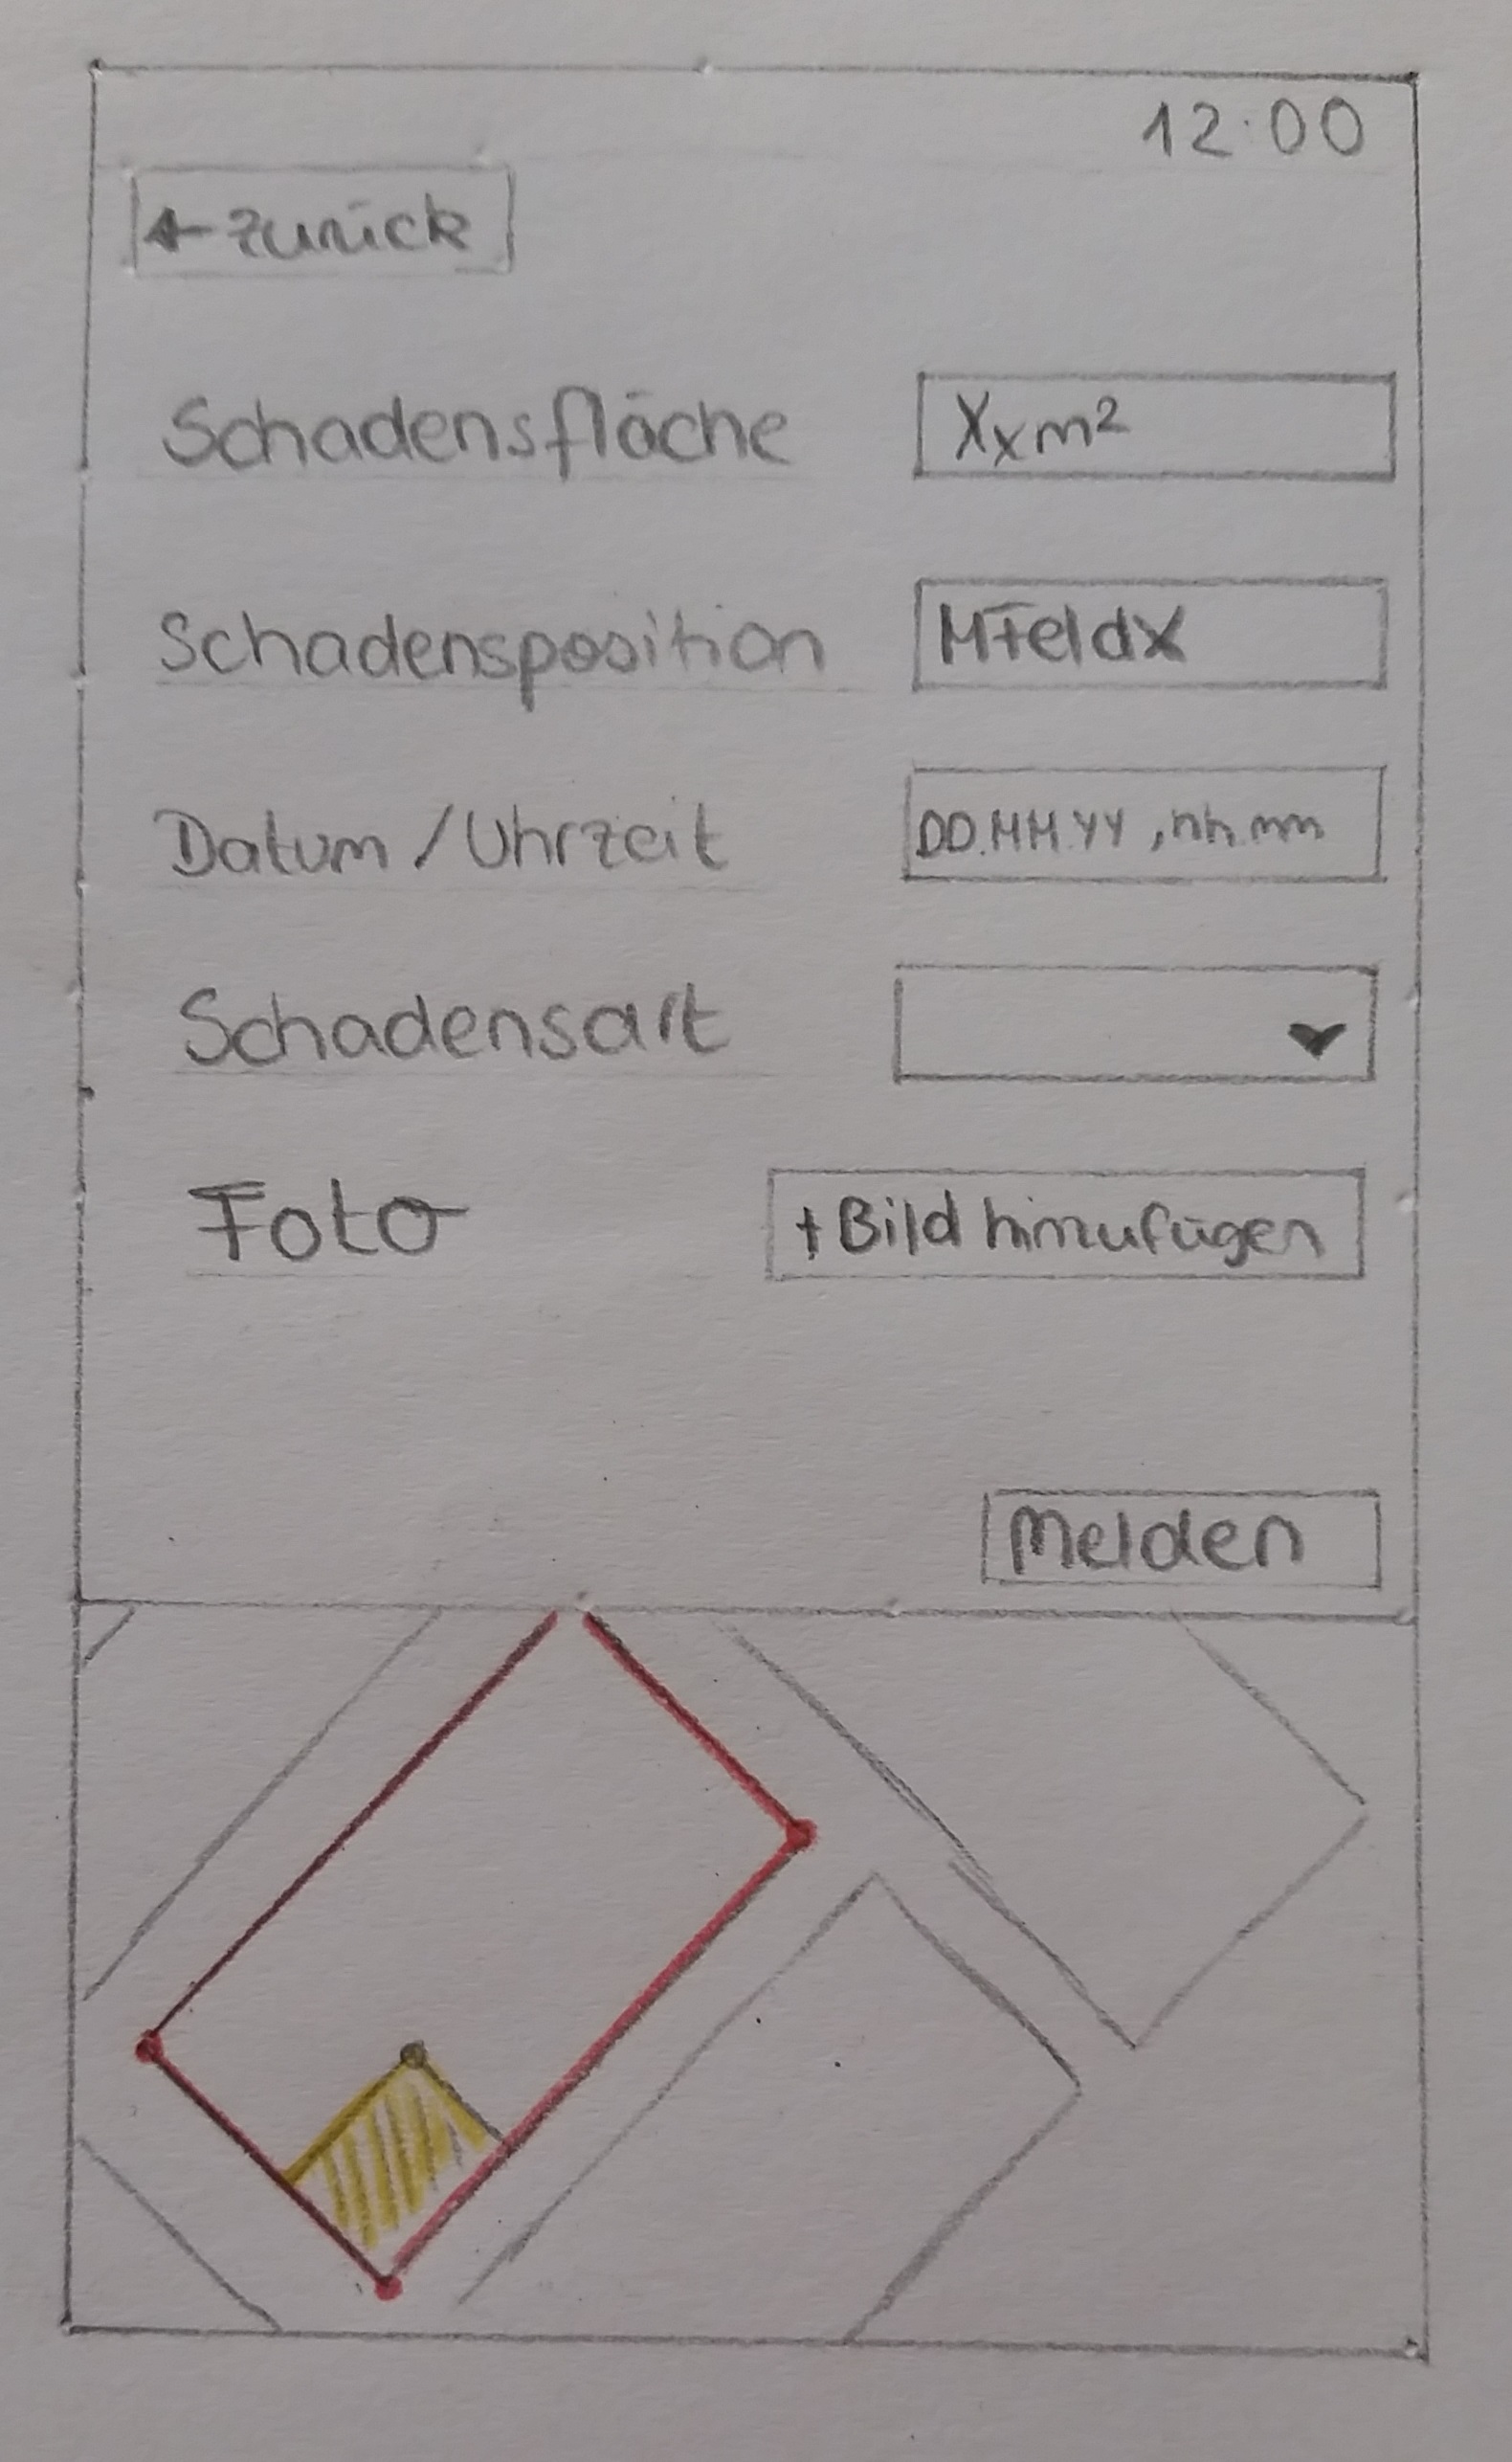 12:00
← zurück
Schadensfläche
Xxm²
Schadensposition
MFeldX
Datum / Uhrzeit
DD.MM.YY, hh:mm
Schadensart
Foto
+ Bild hinzufügen
Melden